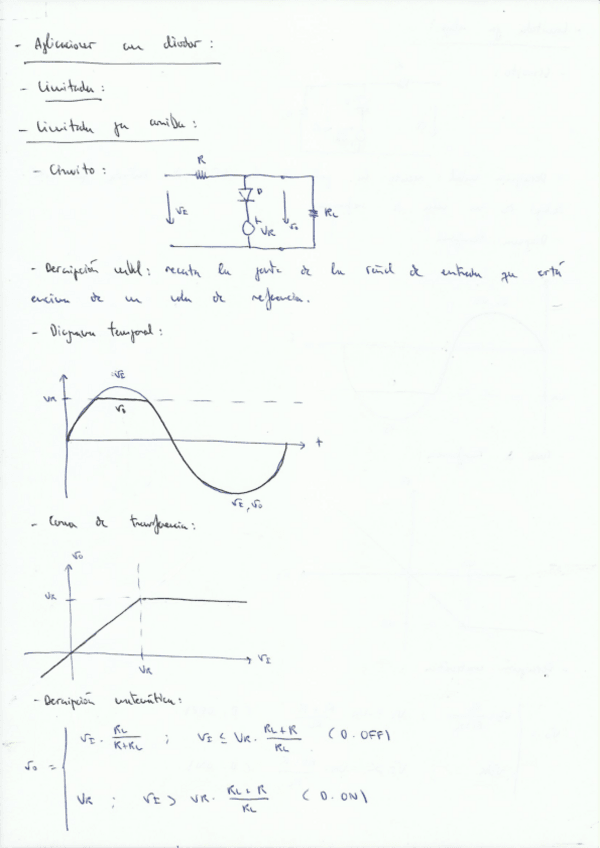 - Aplicaciones con diodos:
- Limitador:
- Limitador por arriba:
- Circuito:
R
D
vI
VR
vo
RL
- Descripción verbal: recorta la parte de la señal de entrada que está
encima de un valor de referencia.
- Diagrama temporal:
vI
VR
vo
t
vI, vo
- Curva de transferencia:
vo
VR
vI
VR
- Descripción matemática:
vI · RL/(R+RL) ; vI ≤ VR · (RL+R)/RL (D. OFF)
vo =
VR ; vI > VR · (RL+R)/RL (D. ON)